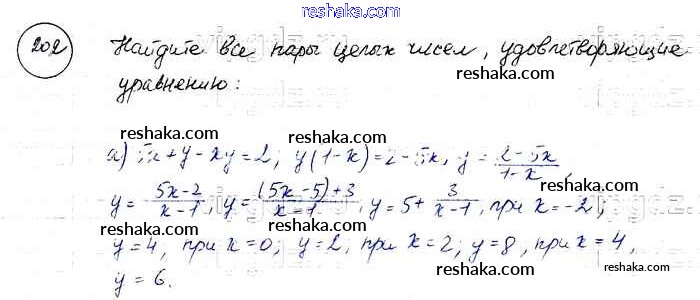 reshaka.com
202 Найдите все пары целых чисел, удовлетворяющие
reshaka.com
уравнению:
reshaka.com
reshaka.com reshaka.com
а) 5x+y-xy=2; y(1-x)=2-5x, y= (2-5x)/(1-x),
y= (5x-2)/(x-1), y= ((5x-5)+3)/(x-1), y=5+ 3/(x-1), при x=-2;
reshaka.com reshaka.com
y=4, при x=0; y=2, при x=2; y=8, при x=4,
y=6.
reshaka.com
reshaka.com